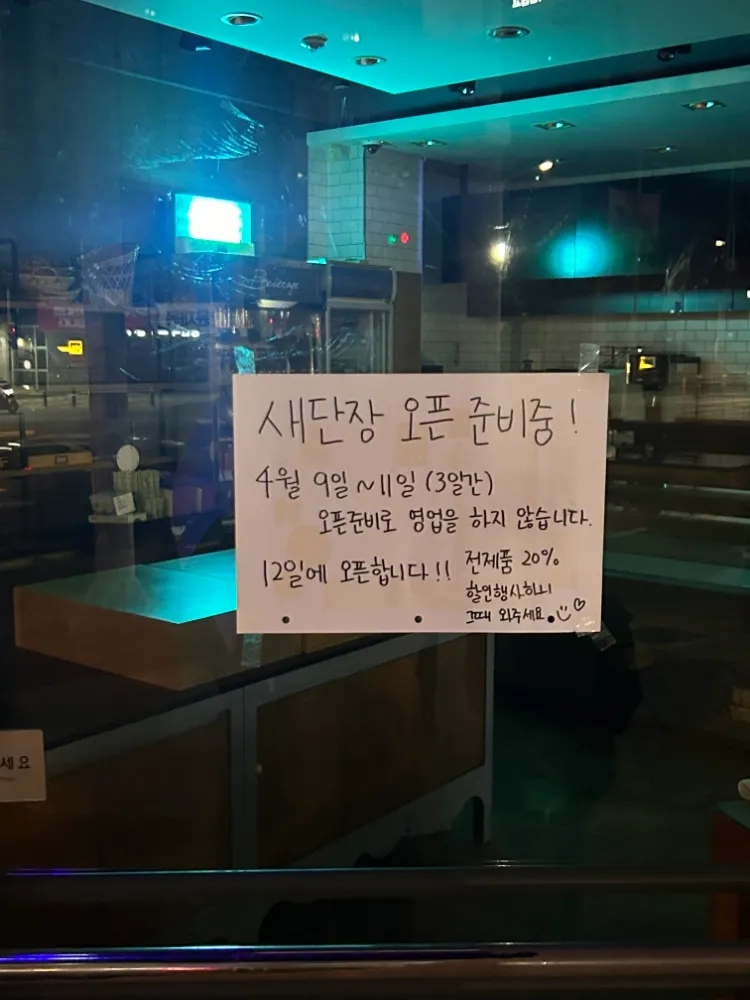 새단장 오픈 준비중!
4월 9일 ~ 11일 (3일간)
오픈준비로 영업을 하지 않습니다.
12일에 오픈합니다!!
전제품 20%
할인행사하니
그때 와주세요.
Beverage
세요